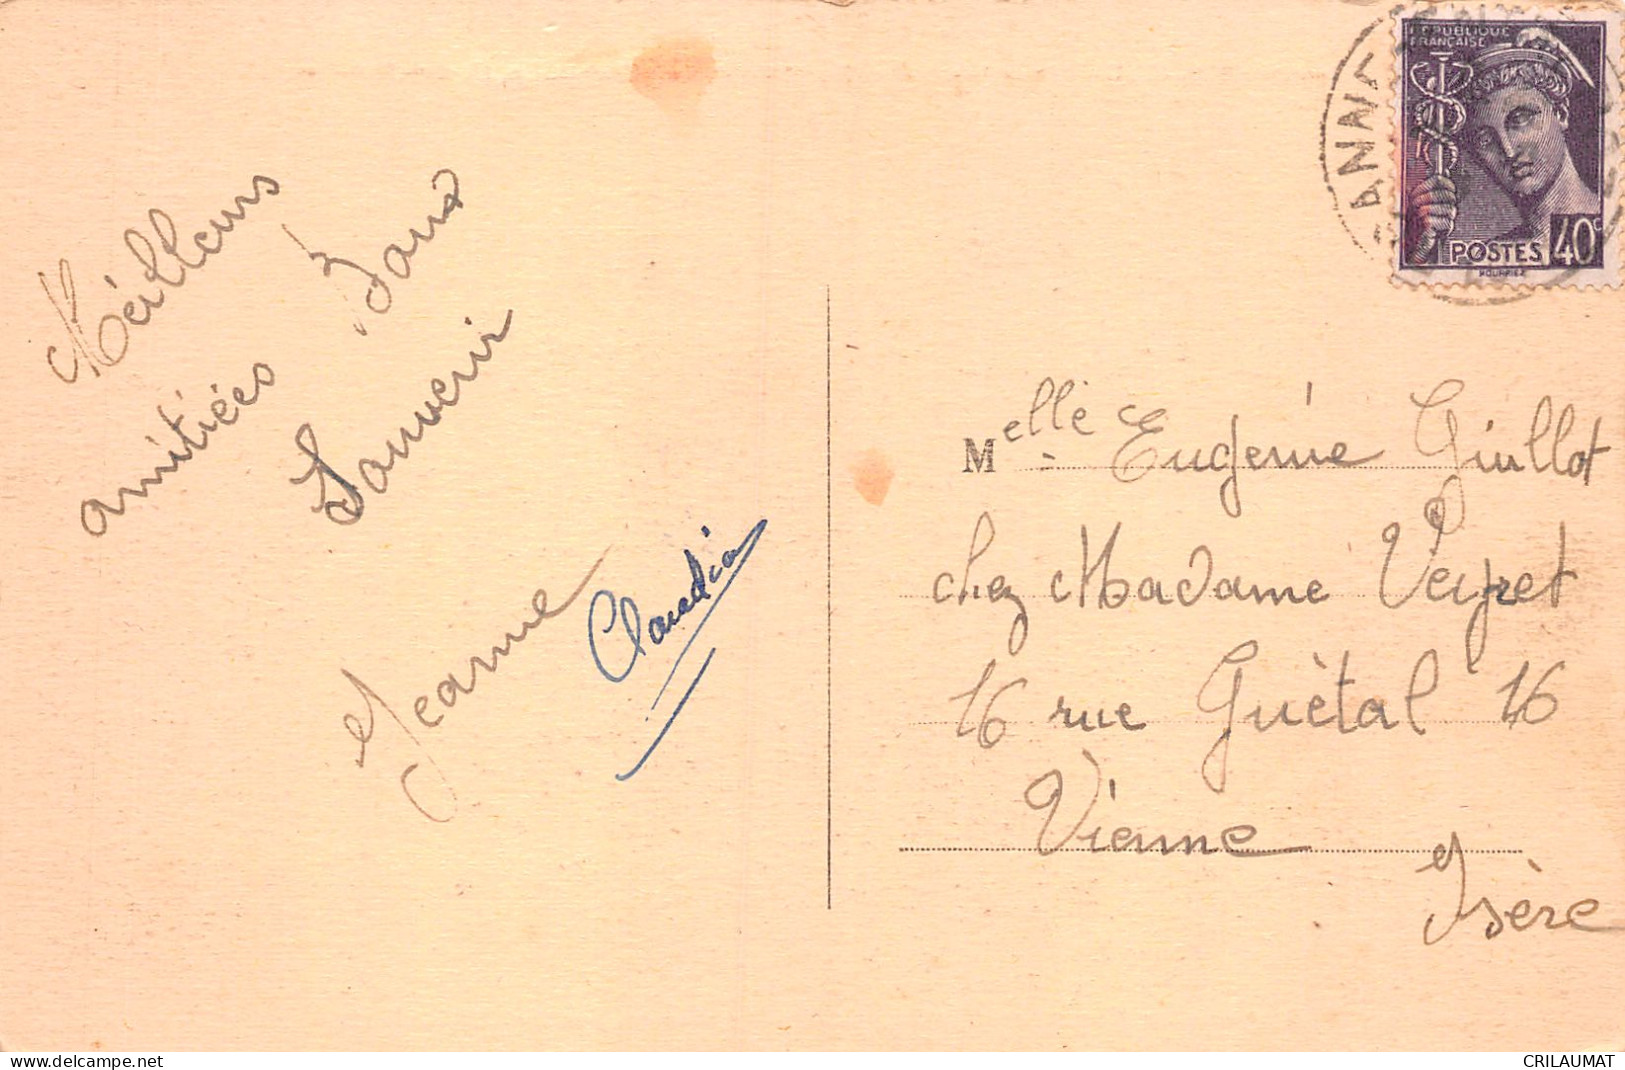 Méilleurs
amitiées Bons
Souvenir
Jeanne
Claudia
RÉPUBLIQUE
FRANÇAISE
POSTES 40c
ANNE
Melle Eugenie Guillot
chez Madame Veyret
16 rue Guètal 16
Vienne
Isère
www.delcampe.net
CRILAUMAT